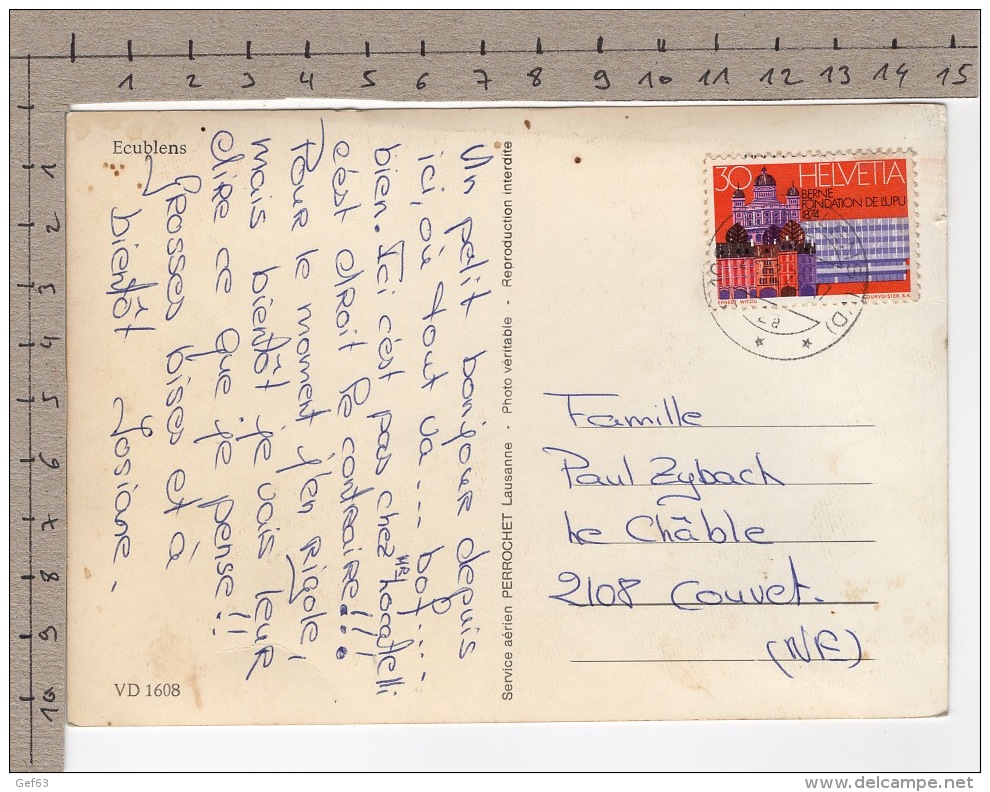 1 2 3 4 5 6 7 8 9 10 11 12 13 14 15
1
2
3
4
5
6
7
8
9
10
Ecublens
Un petit bonjour depuis
ici, où tout va.... bof....
bien. Ici c'est pas chez Mr Locatelli
c'est droit le contraire!!..
Pour le moment j'en rigole,
mais bientôt je vais leur
dire ce que je pense!!
Grosses bises et à
bientôt Josiane.
VD 1608
Service aérien PERROCHET Lausanne - Photo véritable - Reproduction interdite
30 HELVETIA
BERNE
FONDATION DE L'UPU
1874
ERNEST WITZIG COURVOISIER S.A.
Famille
Paul Zybach
Le Châble
2108 Couvet.
(NE)
Gef63
www.delcampe.net